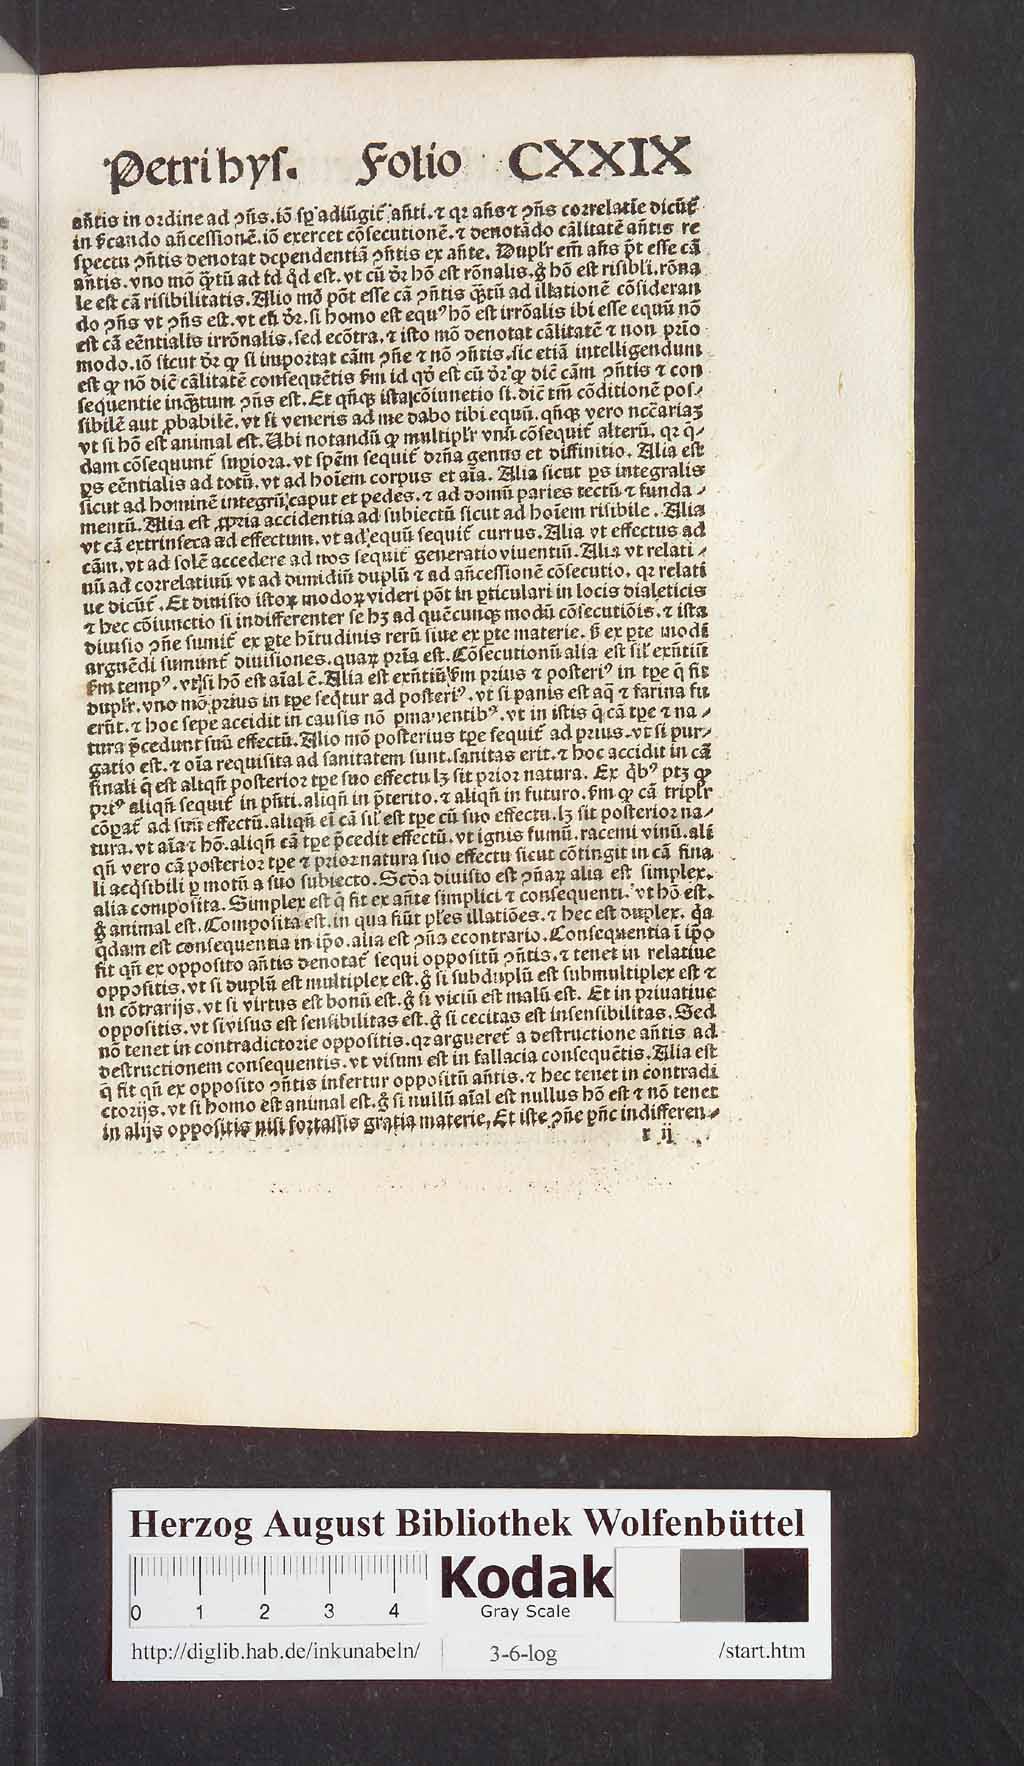 Petri hys. Folio CXXIX
añtis in ordine ad ꝯñs. iõ sꝑ adiũgit᷑ añti. ⁊ qꝛ añs ⁊ ꝯñs correlatiẽ dicũt᷑
in ẜcando añcessionẽ. iõ exercet cõsecutionẽ. ⁊ denotãdo cãlitatẽ añtis re
spectu ꝯñtis denotat dependentiã ꝯñtis ex añte. Duplr̃ em̃ añs põt esse cã
añtis. vno mõ q̃tũ ad id qd̃ est. vt cũ dr̃ hõ est rõnalis. g̊ hõ est risibl̓i. rõna
le est cã risibilitatis. Alio mõ põt esse cã ꝯñtis q̃tũ ad illationẽ cõsideran
do ꝯñs vt ꝯñs est. vt cũ dr̃. si homo est equꝰ hõ est irrõalis ibi esse equũ nõ
est cã eẽntialis irrõnalis. sed ecõtra. ⁊ isto mõ denotat cãlitatẽ ⁊ non prĩo
modo. iõ sicut dr̃ ꝙ si importat cãm ꝯñe ⁊ nõ ꝯñtis. sic etiã intelligendum
est ꝙ nõ dic̃ cãlitatẽ consequẽtis ẜm id qd̓ est cũ dr̃ ꝙ dic̃ cãm ꝯñtis ⁊ con
sequentie inq̃ʒtum ꝯñs est. Et qñqʒ ista cõiunctio si. dic̃ tm̃ cõditionẽ pos⸗
sibilẽ aut ꝓbabilẽ. vt si veneris ad me dabo tibi equũ. qñqʒ vero ncc̃ariaʒ
vt si hõ est animal est. Ubi notandũ ꝙ multiplr̃ vnũ cõsequit᷑ alterũ. qꝛ q̃⸗
dam cõsequunt᷑ supiora. vt spẽm sequit᷑ dr̃ña genus et diffinitio. Alia est
ꝑs eẽntialis ad totũ. vt ad hoĩem corpus et aĩa. Alia sicut ꝑs integralis
sicut ad hominẽ integrũ caput et pedes. ⁊ ad domũ paries tectũ ⁊ funda⸗
mentũ. Alia est ꝓpria accidentia ad subiectũ sicut ad hoĩem risibile. Alia
vt cã extrinseca ad effectum. vt ad equũ sequit᷑ currus. Alia vt effectus ad
cãm. vt ad solẽ accedere ad nos sequit᷑ generatio viuentiũ. Alia vt relati⸗
uũ ad correlatiuũ vt ad dimidiũ duplũ ⁊ ad añcessionẽ cõsecutio. qꝛ relati
ue dicũt᷑. Et diuisio istoꝝ modoꝝ videri põt in ꝑticulari in locis dialeticis
⁊ hec cõiunctio si indifferenter se hʒ ad quẽcunqʒ modũ cõsecutiõis. ⁊ ista
diuisio ꝯñe sumit᷑ ex ꝑte hĩtudinis rerũ siue ex ꝑte materie. ẜ ex ꝑte modi
arguẽdi sumunt᷑ diuisiones. quaꝝ prĩa est. Cõsecutionũ alia est sil̓ exñtiũ
ẜm tempꝰ. vt si hõ est aĩal ẽ. Alia est exñtiũ ẜm prius ⁊ posteriꝰ in tꝑe q̃ fit
duplr̃. vno mõ prius in tꝑe seq̃tur ad posteriꝰ. vt si panis est aq̃ ⁊ farina fu
erũt. ⁊ hoc sepe accidit in causis nõ ꝑmanentibꝰ. vt in istis q̃ cã tꝑe ⁊ na⸗
tura p̃cedunt suũ effectũ. Alio mõ posterius tꝑe sequit᷑ ad prius. vt si pur⸗
gatio est. ⁊ oĩa requisita ad sanitatem sunt. sanitas erit. ⁊ hoc accidit in cã
finali q̃ est aliqñ posterior tꝑe suo effectu lʒ sit prior natura. Ex q̓bꝰ ptʒ ꝙ
prꝰ aliqñ sequit᷑ in p̃nti. aliqñ in p̃terito. ⁊ aliqñ in futuro. ẜm ꝙ cã triplr̃
cõꝑat᷑ ad suũ effectũ. aliqñ eĩ cã sil̓ est tꝑe cũ suo effectu. lʒ sit posterior na⸗
tura. vt aĩa ⁊ hõ. aliqñ cã tꝑe p̃cedit effectũ. vt ignis fumũ. racemi vinũ. ali
qñ vero cã posterior tꝑe ⁊ prior natura suo effectu sicut cõtingit in cã fina
li acq̓sibili ꝑ motũ a suo subiecto. Scd̃a diuisio est ꝯñaꝝ alia est simplex.
alia composita. Simplex est q̃ fit ex añte simplici ⁊ consequenti. vt hõ est.
g̊ animal est. Composita est. in qua fiũt ples illatiões. ⁊ hec est duplex. q̃a
q̃dam est consequentia in ip̃o. alia est ꝯña econtrario. Consequentia ĩ ip̃o
fit qñ ex opposito añtis denotat᷑ sequi oppositũ ꝯñtis. ⁊ tenet in relatiue
oppositis. vt si duplũ est multiplex est. g̊ si subduplũ est submultiplex est ⁊
in cõtrarijs. vt si virtus est bonũ est. g̊ si viciũ est malũ est. Et in priuatiue
oppositis. vt si visus est sensibilitas est. g̊ si cecitas est insensibilitas. Sed
nõ tenet in contradictorie oppositis. qꝛ argueret᷑ a destructione añtis ad
destructionem consequentis. vt visum est in fallacia consequẽtis. Alia est
q̃ fit qñ ex opposito ꝯñtis infertur oppositũ añtis. ⁊ hec tenet in contradi
ctorijs. vt si homo est animal est. g̊ si nullũ aĩal est nullus hõ est ⁊ nõ tenet
in alijs oppositis nisi fortassis gratia materie. Et iste ꝯñe p̃nc indifferen⸗
r ij
Herzog August Bibliothek Wolfenbüttel
0 1 2 3 4
Kodak
Gray Scale
http://diglib.hab.de/inkunabeln/ 3-6-log /start.htm